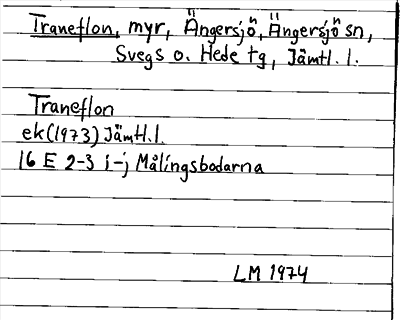 Traneflon, myr, Ängersjö, Ängersjö sn,
Svegs o. Hede tg, Jämtl. l.
Traneflon
ek (1973) Jämtl. l.
16 E 2-3 i-j Målingsbodarna
LM 1974